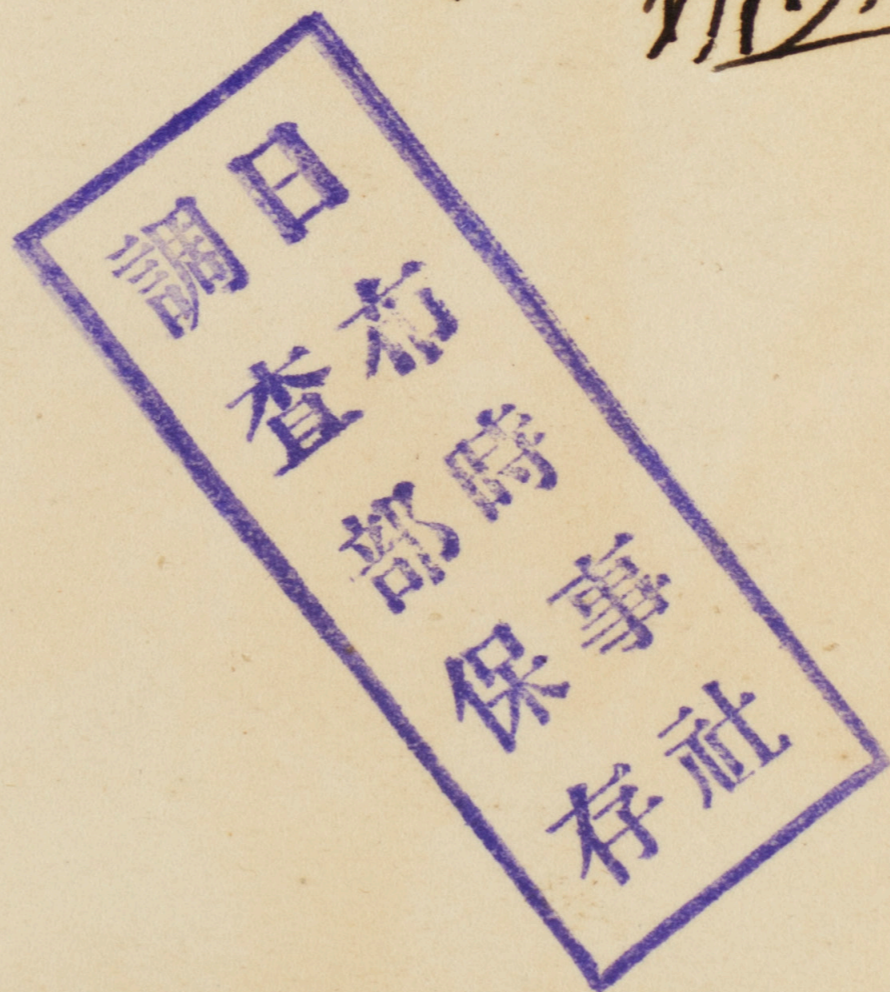 日布時事社
調査部保存